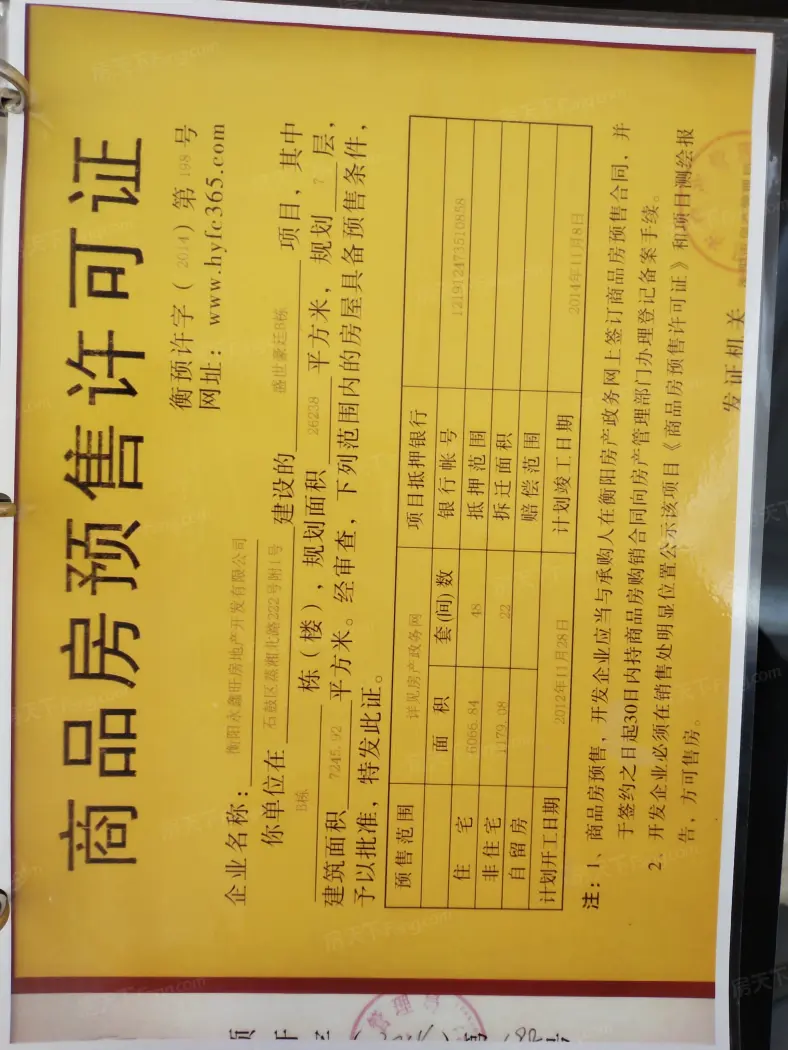 商品房预售许可证
衡预许字（2014）第198号
网址：www.hyfc365.com
企业名称：衡阳永鑫旺房地产开发有限公司
你单位在 石鼓区蒸湘北路222号附1号 建设的 盛世豪廷B栋 项目，其中
B栋 栋（楼），规划面积 26238 平方米，规划 7 层，
建筑面积 7245.92 平方米。经审查，下列范围内的房屋具备预售条件，
予以批准，特发此证。
预售范围 详见房产政务网 项目抵押银行
面积 套(间)数 银行帐号 121912473510858
住宅 6066.84 48 抵押范围
非住宅 1179.08 22 拆迁面积
自留房 赔偿范围
计划开工日期 2012年11月28日 计划竣工日期 2014年11月8日
注：1、商品房预售，开发企业应当与承购人在衡阳房产政务网上签订商品房预售合同，并
于签约之日起30日内持商品房购销合同向房产管理部门办理登记备案手续。
2、开发企业必须在销售处明显位置公示该项目《商品房预售许可证》和项目测绘报
告，方可售房。
发证机关
房天下 Fang.com
管理